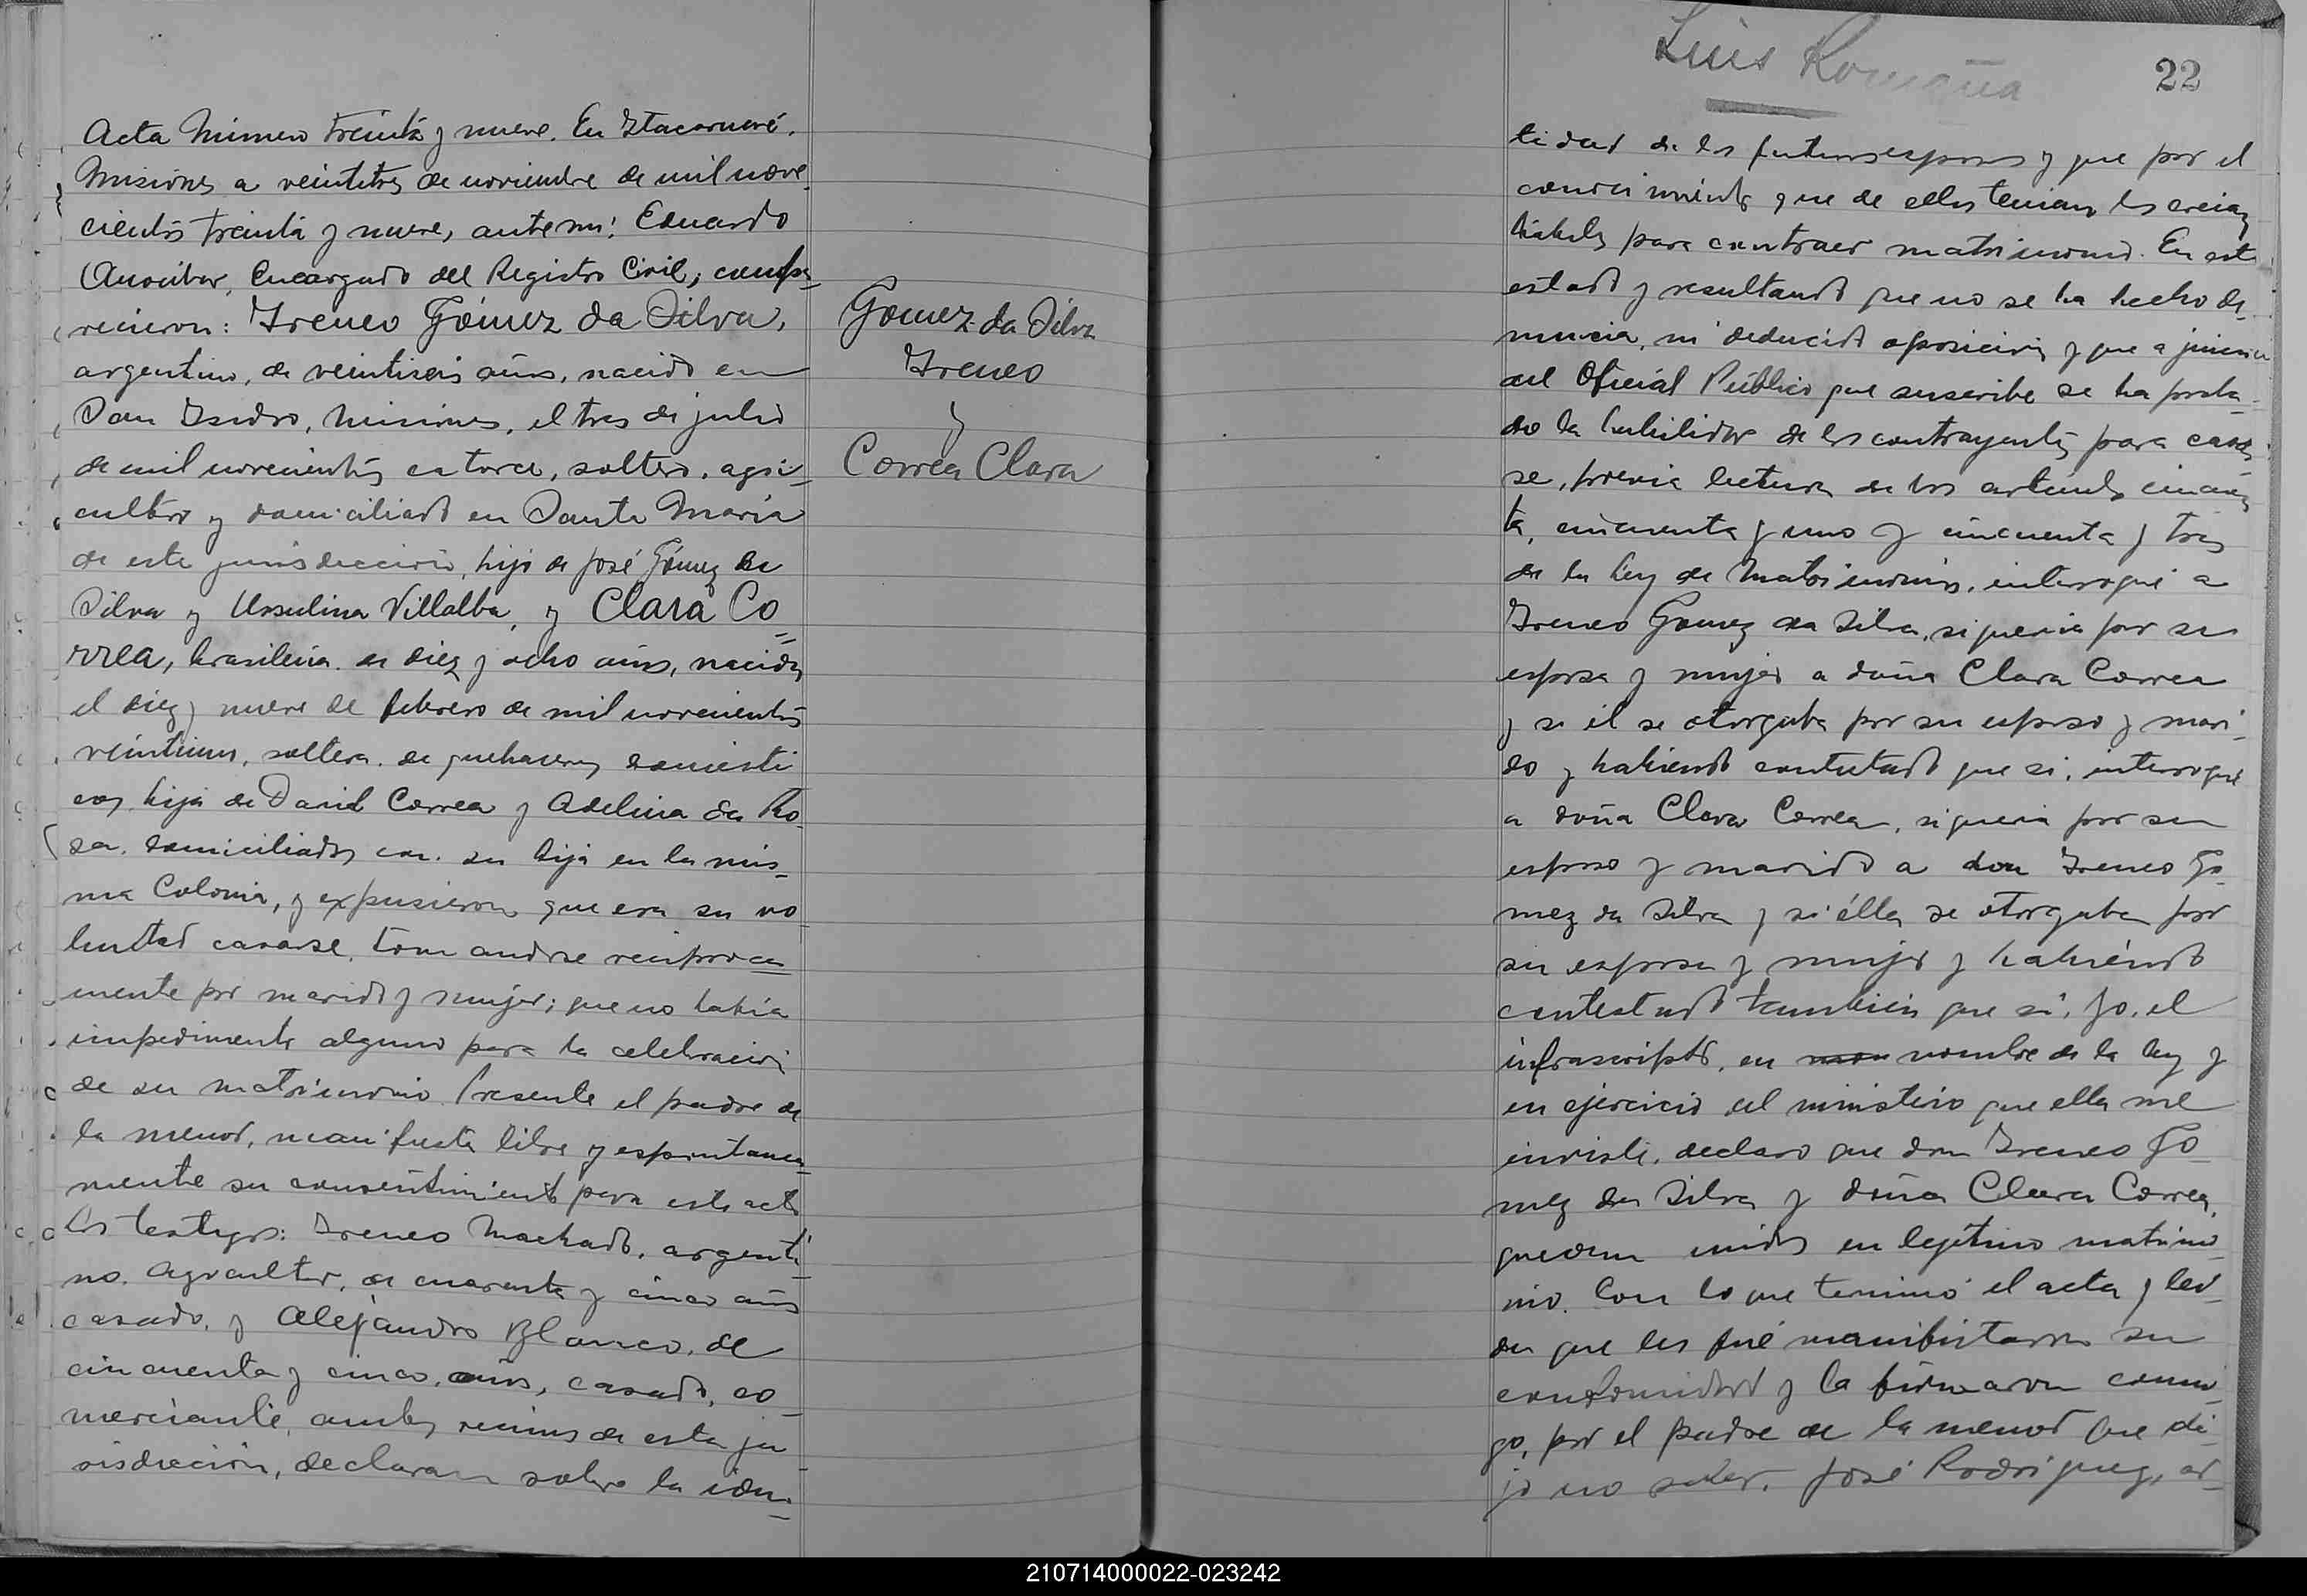 Acta Número treinta y nueve. En Itacaruaré,
Misiones a veintitres de noviembre de mil nove_
cientos treinta y nueve, ante mi: Eduardo
Encargado del Registro Civil, compa_
recieron: Ireneo Gómez da Silva,
argentino, de veintiseis años, nacido en
San Isidro, Misiones, el tres de julio
de mil novecientos catorce, soltero, agri_
cultor y domiciliado en Santa María
de esta jurisdicción, hijo de José Gómez da
Silva y Ursulina Villalba, y Clara Co=
rrea, brasileña de diez y ocho años, nacida
el diez y nueve de febrero de mil novecientos
veintiuno, soltera, de quehaceres domesti
cos, hija de David Correa y Adelina da Ro_
sa, domiciliados con su hija en la mis_
ma Colonia, y expusieron que era su vo
luntad casarse, tomandose reciproca_
mente por marido y mujer; que no había
impedimento alguno para la celebración
de su matrimonio. Presente el padre de
la menor, manifiesta libre y espontanea_
mente su consentimiento para este acto
Los testigos: Ireneo Machado, argenti_
no, Agricultor, de cuarenta y cinco años
casado, y Alejandro Blanco, de
cincuenta y cinco, años, casado, co_
merciante, ambos vecinos de esta ju_
risdicción, declaran sobre la iden_
Gomez da Silva
Ireneo
y
Correa Clara
Luis Romaña
22
tidad de los futuros esposos y que por el
conocimiento que de ellos tenian los creian
habiles para contraer matrimonio. En este
estado y resultando que no se ha hecho de_
nuncia, ni deducido oposición y que a juicio
del Oficial Público que suscribe se ha proba_
do la habilidad de los contrayentes para casar_
se, previa lectura de los articulos cincuen_
ta, cincuenta y uno y cincuenta y tres
de la ley de Matrimonio, interrogué a
Ireneo Gomez da Silva, si queria por su
esposa y mujer a doña Clara Correa
y si él se otorgaba por su esposo y mari_
do y habiendo contestado que si, interrogué
a doña Clara Correa, si queria por su
esposo y marido a don Ireneo Go_
mez da Silva y si élla se otorgaba por
su esposa y mujer y habiendo
contestado también que si, Yo, el
infrascripto, en nombre de la ley y
en ejercicio del ministerio que ella me
inviste, declaro que don Ireneo Go_
mez da Silva y doña Clara Correa,
quedan unidos en legitimo matrimo_
nio. Con lo que terminó el acta y lei_
da que les fué manifestaron su
conformidad y la firmaron conmi_
go, por el padre de la menor que di_
jo no saber, José Rodriguez, ar_
210714000022-023242